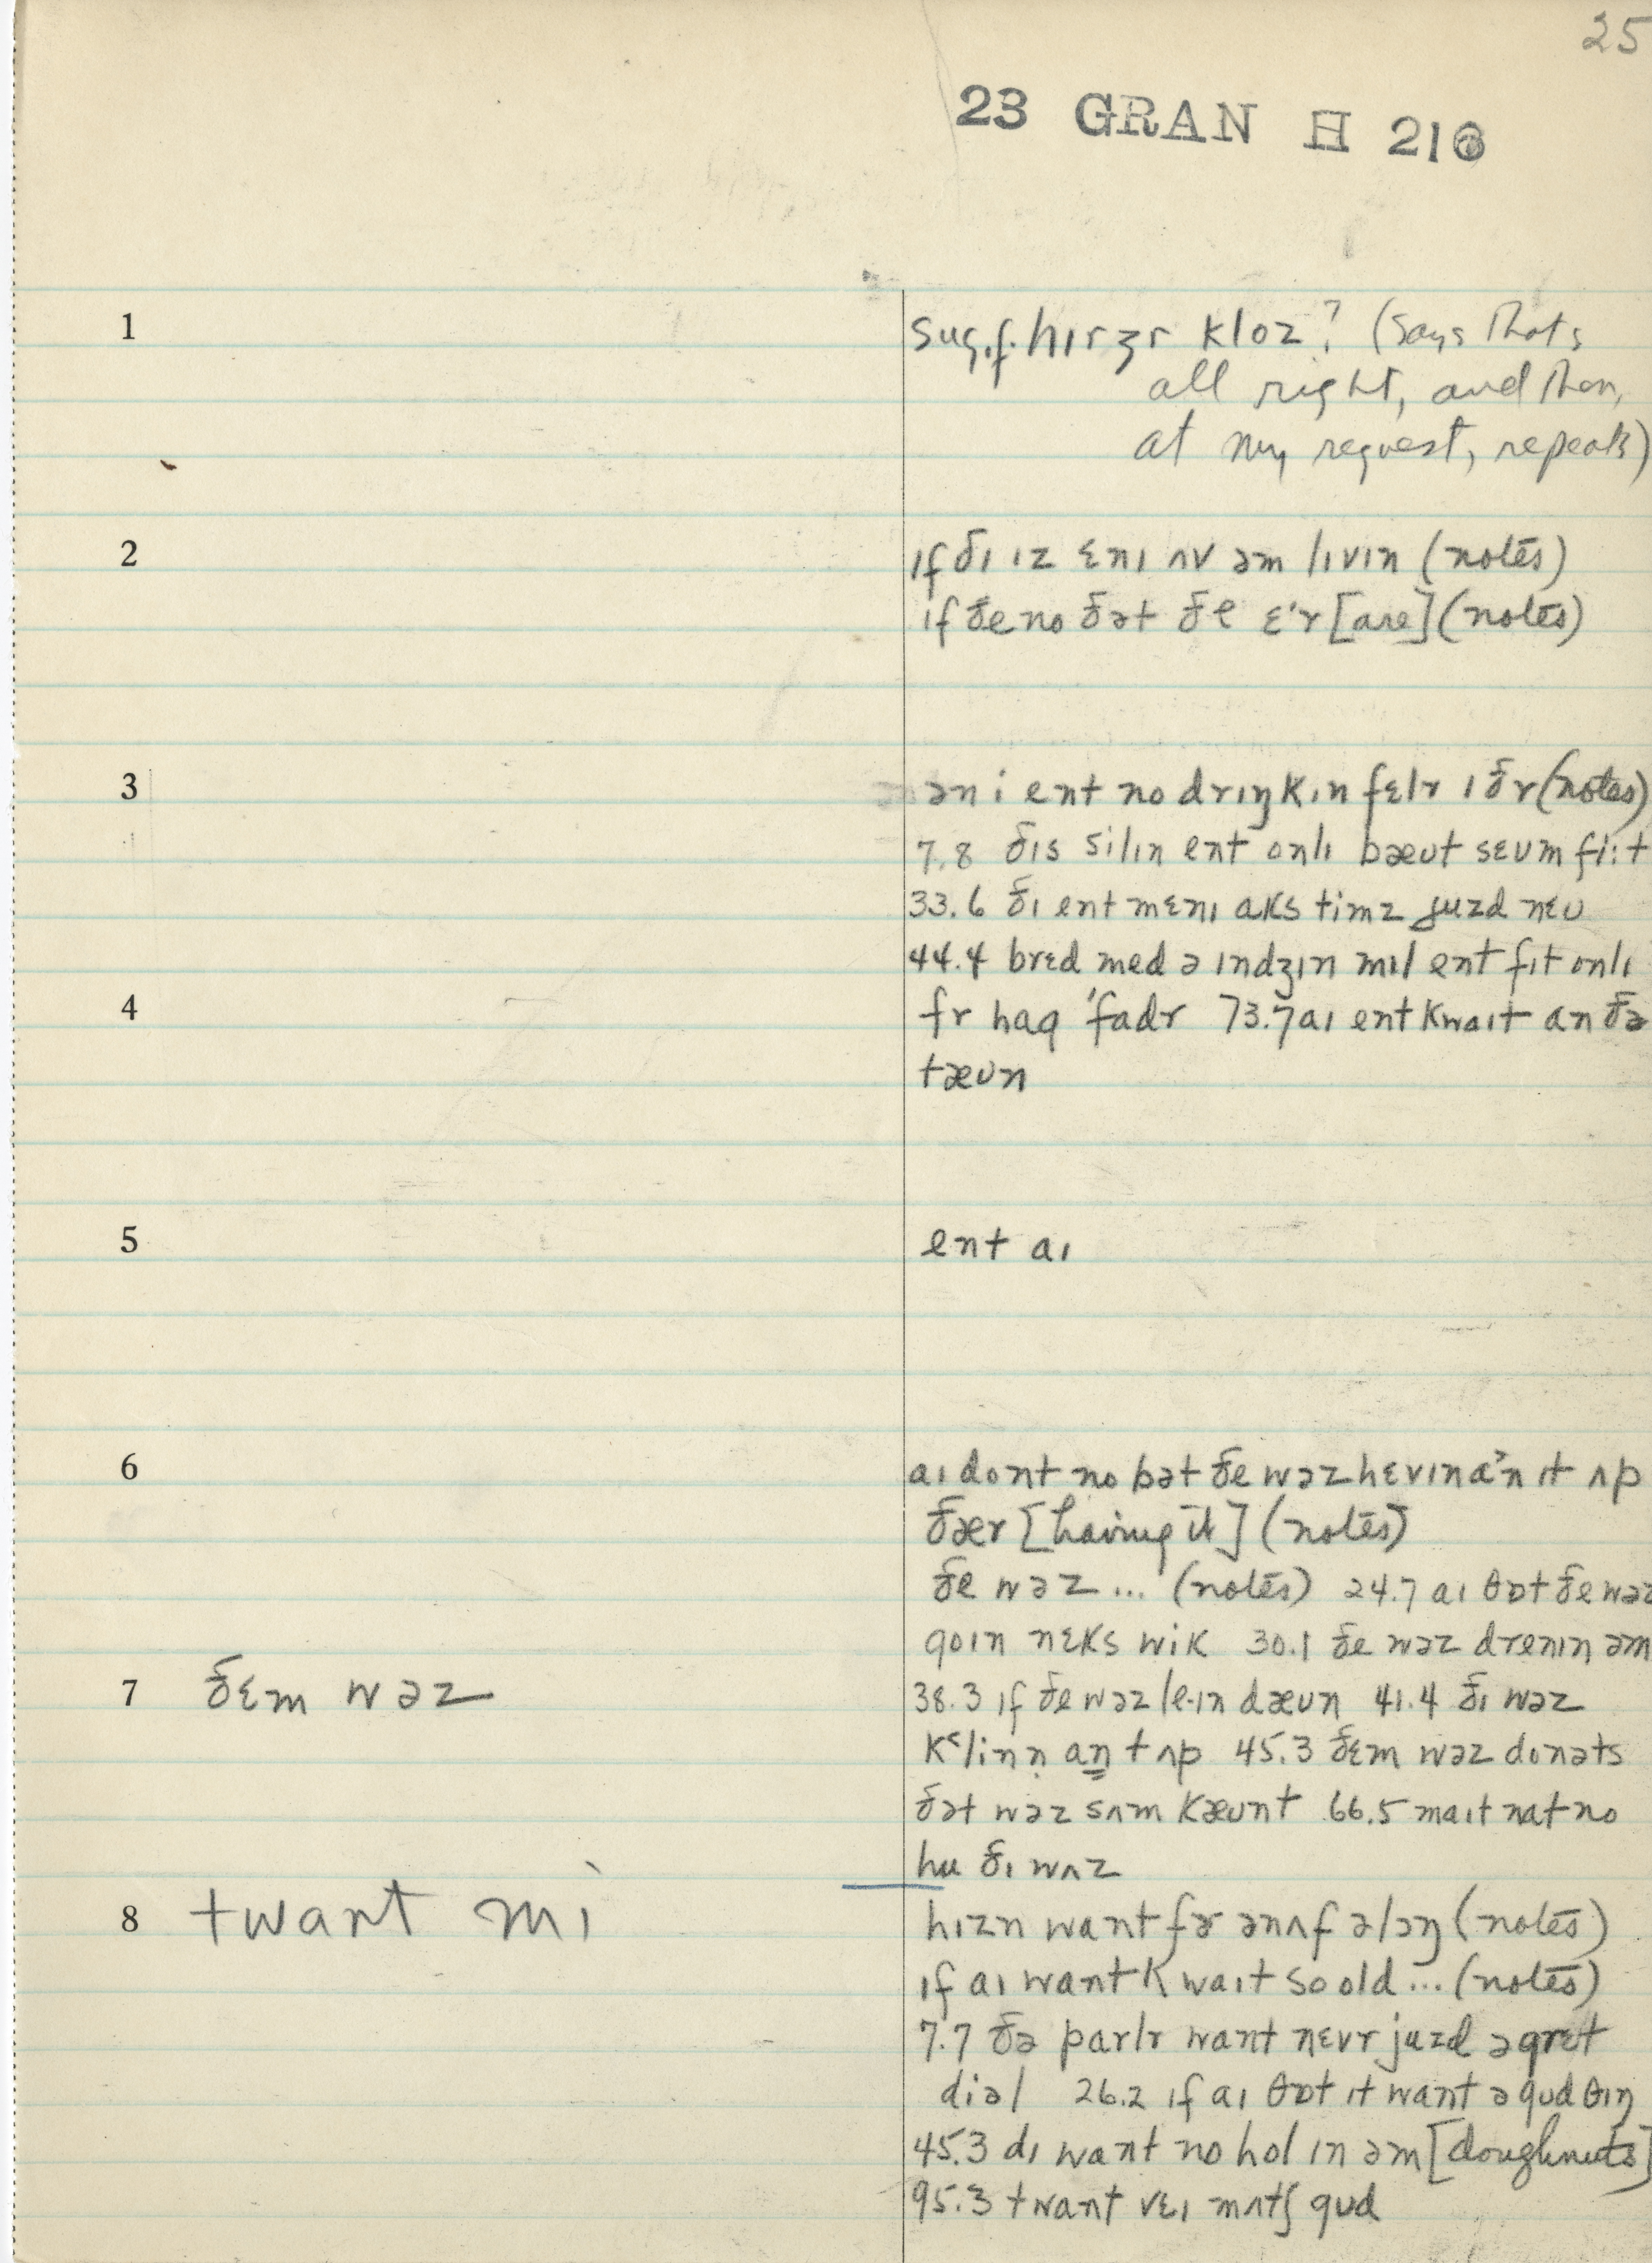 25
23 GRAN H 216
1 sug.f. hɪrʒr kloz? (says that's
all right, and then,
at my request, repeats)
2 ɪf ðɪ ɪz ɛnɪ ʌv əm lɪvɪn (notes)
if ðe no ðət ðe ɛ'r [are] (notes)
3 ən i ent no drɪŋkɪn fɛlr ɪðr (notes)
7.8 ðɪs silɪn ent onlɪ bæʊt sɛʊm fi:t
33.6 ðɪ ent mɛnɪ aks timz juzd nɛʊ
44.4 brɛd med ə ɪndʒɪn mɪl ent fɪt onlɪ
4 fr hag 'fadr 73.7 aɪ ent kwaɪt an ðə
tæʊn
5 ent aɪ
6 aɪ dont no bət ðe wəz hɛvɪn a'n ɪt ʌp
ðær [having it] (notes)
ðe wəz ... (notes) 24.7 aɪ θɒt ðe wəz
goɪn nɛks wik 30.1 ðe wəz drenɪn əm
7 ðɛm wəz 38.3 ɪf ðe wəz le·ɪn dæʊn 41.4 ðɪ wəz
k˂linṇ aṉ t ʌp 45.3 ðɛm wəz donəts
ðət wəz sʌm kæʊnt 66.5 maɪt nat no
hu ðɪ wʌz
8 twant mɪ hɪzn want fər ənʌf əlɔŋ (notes)
ɪf aɪ want kwaɪt so old ... (notes)
7.7 ðə parlr want nɛvr juzd əgret
diəl 26.2 ɪf aɪ θɒt ɪt want ə gʊd θɪŋ
45.3 dɪ want no hol ɪn əm [doughnuts]
95.3 twant vɛɪ mʌtʃ gʊd